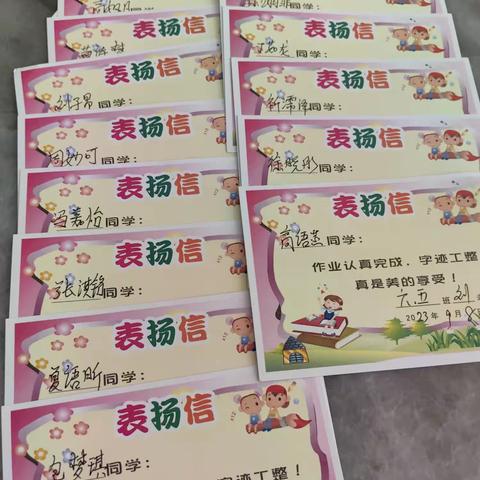 同学:
表扬信
同学:
表扬信
刘子昂同学:
表扬信
周妙可同学:
表扬信
冯嘉怡同学:
表扬信
张洪铭同学:
表扬信
夏语昕同学:
表扬信
包梦琪同学:
字迹工整!
同学:
表扬信
同学:
表扬信
同学:
表扬信
徐晓彤同学:
表扬信
高语燕同学:
作业认真完成，字迹工整
真是美的享受!
六五班刘
2023年9月8